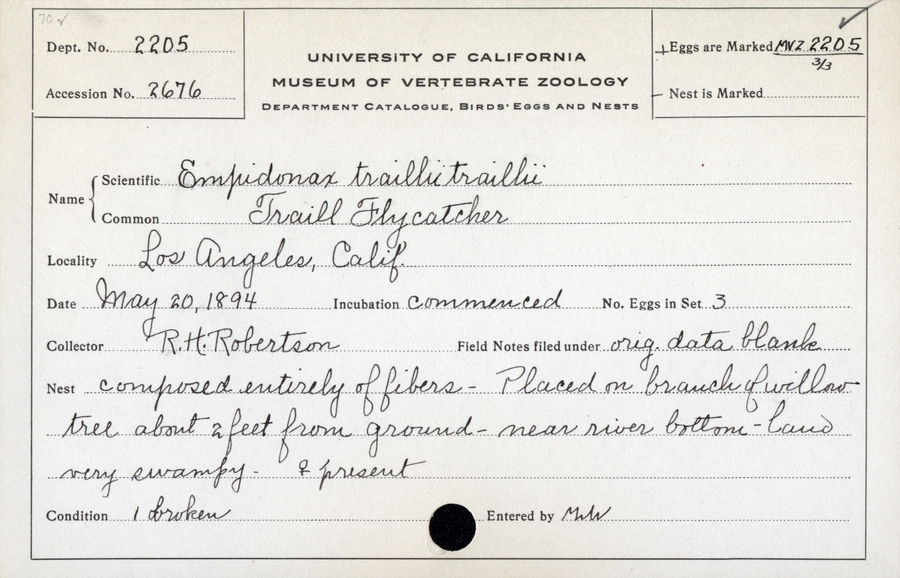 70 ✓
Dept. No. 2205
Accession No. 2676
UNIVERSITY OF CALIFORNIA
MUSEUM OF VERTEBRATE ZOOLOGY
DEPARTMENT CATALOGUE, BIRDS' EGGS AND NESTS
+ Eggs are Marked MVZ 2205
3/3
– Nest is Marked
Name
Scientific Empidonax traillii traillii
Common Traill Flycatcher
Locality Los Angeles, Calif.
Date May 20, 1894 Incubation commenced No. Eggs in Set 3
Collector R.H. Robertson Field Notes filed under orig. data blank
Nest composed entirely of fibers - Placed on branch of willow
tree about 2 feet from ground - near river bottom - land
very swampy - ♀ present
Condition 1 broken Entered by